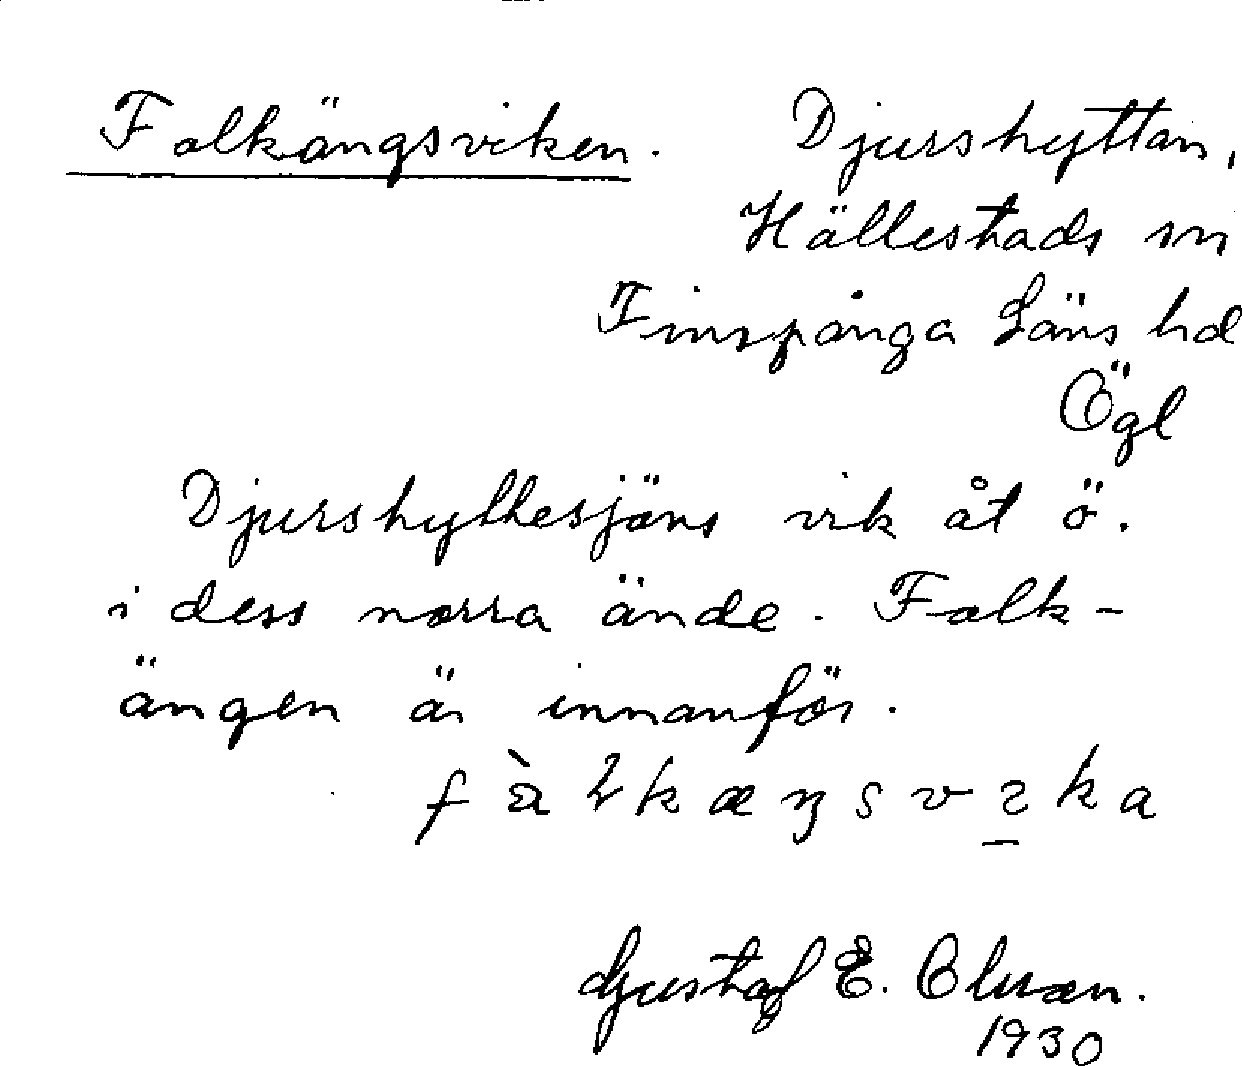 Falkängsviken. Djurshyttan,
Hällestads sn
Finspånga Läns hd
Ögl
Djurshyttesjöns vik åt ö.
i dess norra ände. Falk-
ängen är innanför.
Gustaf E.
1930